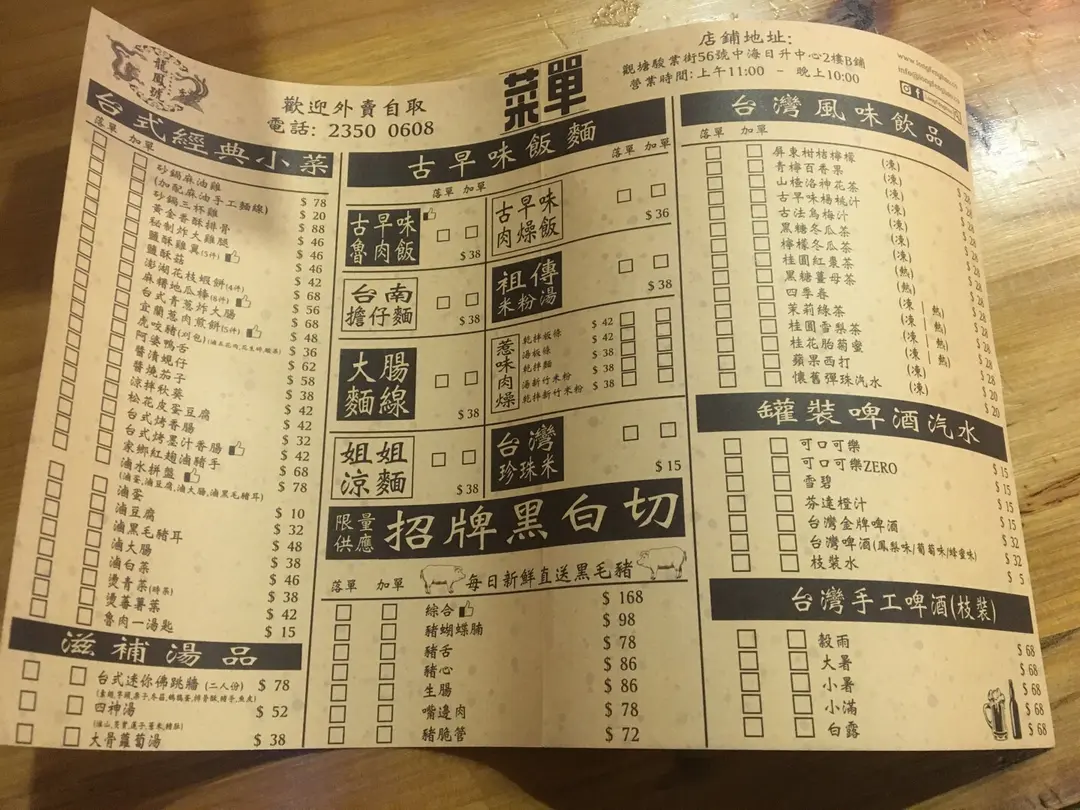 龍鳳號
歡迎外賣自取
電話: 2350 0608
菜單
店鋪地址:
觀塘駿業街56號中海日升中心2樓B舖
營業時間:上午11:00 - 晚上10:00
台式經典小菜
落單 加單
砂鍋麻油雞 $ 78
(加配麻油手工麵線) $ 20
砂鍋三杯雞 $ 88
黃金香酥排骨 $ 46
秘制炸大雞腿 $ 46
鹽酥雞翼(5件) $ 46
鹽酥菇 $ 42
澎湖花枝蝦餅(4件) $ 68
麻糬地瓜棒(6件) $ 56
台式青蔥炸大腸 $ 68
宜蘭蔥肉煎餅(5件) $ 48
虎咬豬(刈包) $ 36
阿婆鴨舌 $ 62
醬漬蜆仔 $ 58
醬燒茄子 $ 38
涼拌秋葵 $ 42
松花皮蛋豆腐 $ 42
台式烤香腸 $ 32
台式烤墨汁香腸 $ 42
家鄉紅麴滷豬手 $ 68
滷水拼盤 $ 78
(滷蛋,滷豆腐,滷大腸,滷黑毛豬耳)
滷蛋 $ 10
滷豆腐 $ 32
滷黑毛豬耳 $ 48
滷大腸 $ 38
滷白菜 $ 46
燙青菜(時菜) $ 38
燙蕃薯葉 $ 42
魯肉一湯匙 $ 15
滋補湯品
台式迷你佛跳牆 (二人份) $ 78
四神湯 $ 52
大骨蘿蔔湯 $ 38
古早味飯麵
落單 加單
落單 加單
古早味魯肉飯 $ 38
古早味肉燥飯 $ 36
台南擔仔麵 $ 38
祖傳米粉湯 $ 38
大腸麵線 $ 38
惹味肉燥
乾拌板條 $ 42
湯板條 $ 42
乾拌麵 $ 38
湯新竹米粉 $ 38
乾拌新竹米粉 $ 38
姐姐涼麵 $ 38
台灣珍珠米 $ 15
限量供應 招牌黑白切
落單 加單
每日新鮮直送黑毛豬
綜合 $ 168
豬蝴蝶腩 $ 98
豬舌 $ 78
豬心 $ 86
生腸 $ 86
嘴邊肉 $ 78
豬脆管 $ 72
台灣風味飲品
落單 加單
屏東柑桔檸檬 (凍) $ 28
青檸百香果 (凍) $ 28
山楂洛神花茶 (凍) $ 28
古早味楊桃汁 (凍) $ 28
古法烏梅汁 (凍) $ 28
黑糖冬瓜茶 (凍) $ 28
檸檬冬瓜茶 (凍) $ 28
桂圓紅棗茶 (熱) $ 28
黑糖薑母茶 (熱) $ 28
四季春 (凍 | 熱) $ 28
茉莉綠茶 (凍 | 熱) $ 28
桂圓雪梨茶 (凍 | 熱) $ 28
桂花胎菊蜜 (凍 | 熱) $ 28
蘋果西打 (凍) $ 20
懷舊彈珠汽水 (凍) $ 20
罐裝啤酒汽水
可口可樂 $ 15
可口可樂ZERO $ 15
雪碧 $ 15
芬達橙汁 $ 15
台灣金牌啤酒 $ 32
台灣啤酒(鳳梨味/葡萄味/蜂蜜味) $ 32
枝裝水 $ 5
台灣手工啤酒(枝裝)
穀雨 $ 68
大暑 $ 68
小暑 $ 68
小滿 $ 68
白露 $ 68